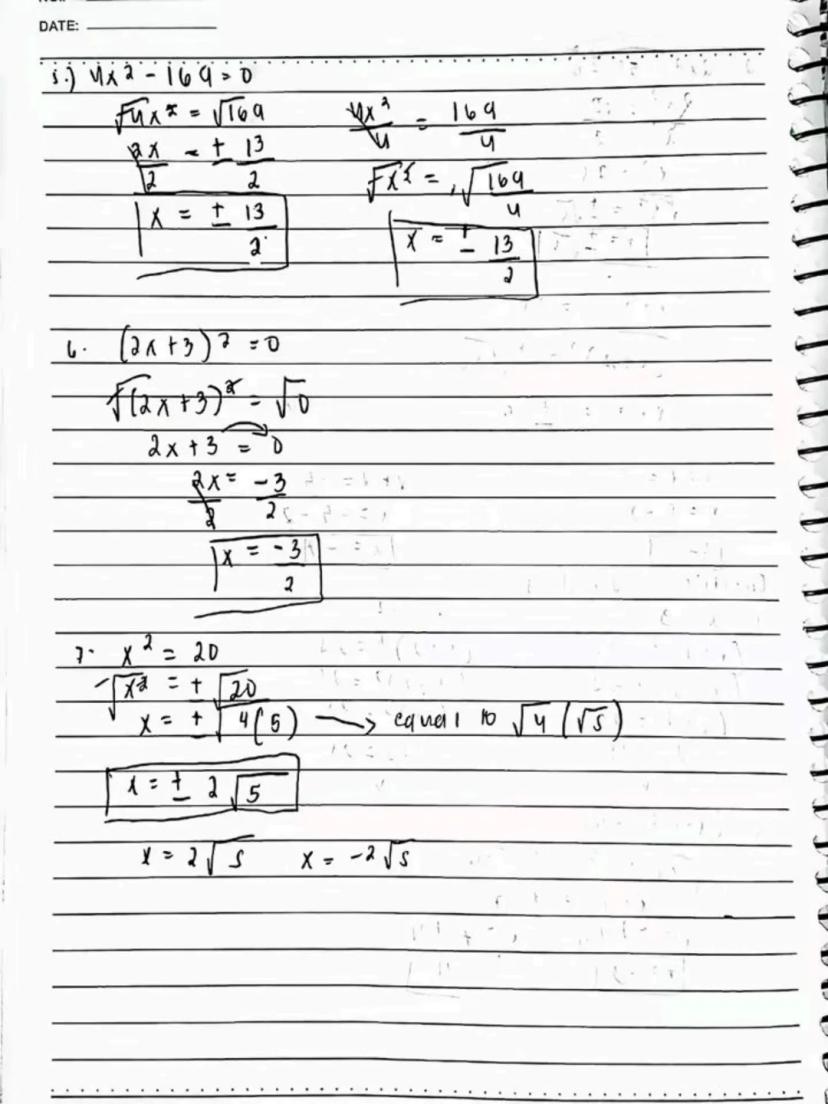 DATE:
5.) 4x² - 169 = 0
√4x² = √169
2x/2 = ± 13/2
x = ± 13/2
4x²/4 = 169/4
√x² = √169/4
x = ± 13/2
6. (2x+3)² = 0
√(2x+3)² = √0
2x+3 = 0
2x/2 = -3/2
x = -3/2
7. x² = 20
√x² = ± √20
x = ± √4(5) → equal to √4 (√5)
x = ± 2√5
x = 2√5 x = -2√5